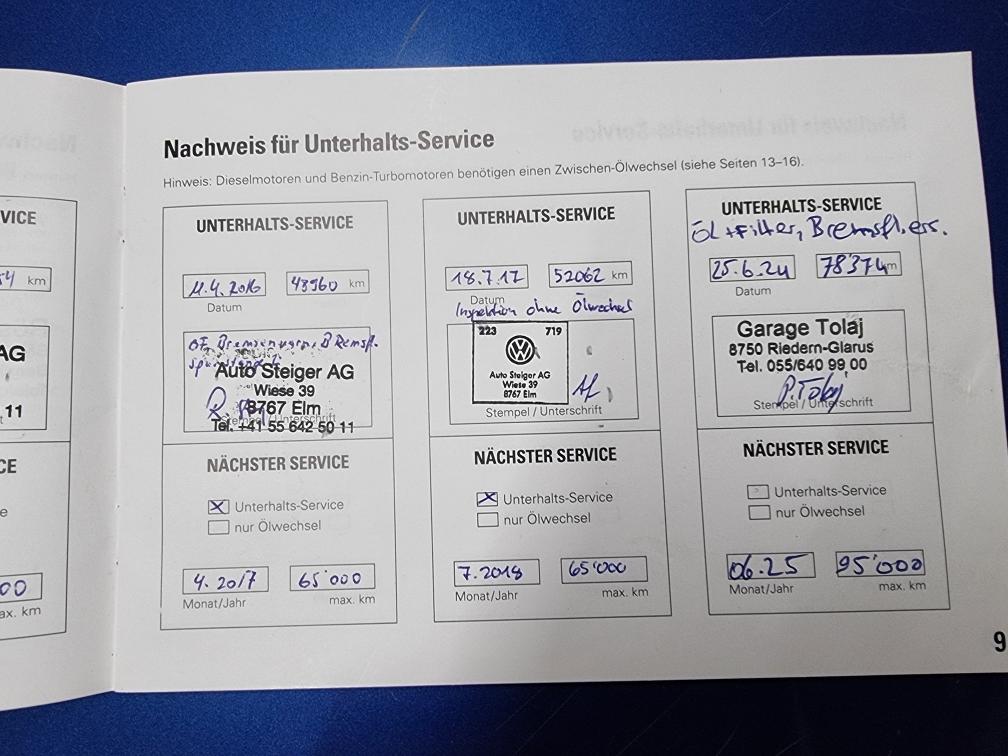 VICE
54 km
AG
11
CE
e
00
ax. km
Nachweis für Unterhalts-Service
Hinweis: Dieselmotoren und Benzin-Turbomotoren benötigen einen Zwischen-Ölwechsel (siehe Seiten 13–16).
UNTERHALTS-SERVICE
11.4.2016 48960 km
Datum
Auto Steiger AG
Wiese 39
8767 Elm
Stempel / Unterschrift
Tel. +41 55 642 50 11
NÄCHSTER SERVICE
X Unterhalts-Service
nur Ölwechsel
4.2017 65'000
Monat/Jahr max. km
UNTERHALTS-SERVICE
18.7.17 52062 km
Datum
Inspektion ohne Ölwechsel
223 719
VW
Auto Steiger AG
Wiese 39
8767 Elm
Stempel / Unterschrift
NÄCHSTER SERVICE
X Unterhalts-Service
nur Ölwechsel
7.2018 65'000
Monat/Jahr max. km
UNTERHALTS-SERVICE
ÖL+Filter, Bremsfl. ers.
25.6.24 78374 km
Datum
Garage Tolaj
8750 Riedern-Glarus
Tel. 055/640 99 00
P. Tolaj
Stempel / Unterschrift
NÄCHSTER SERVICE
Unterhalts-Service
nur Ölwechsel
06.25 95'000
Monat/Jahr max. km
9